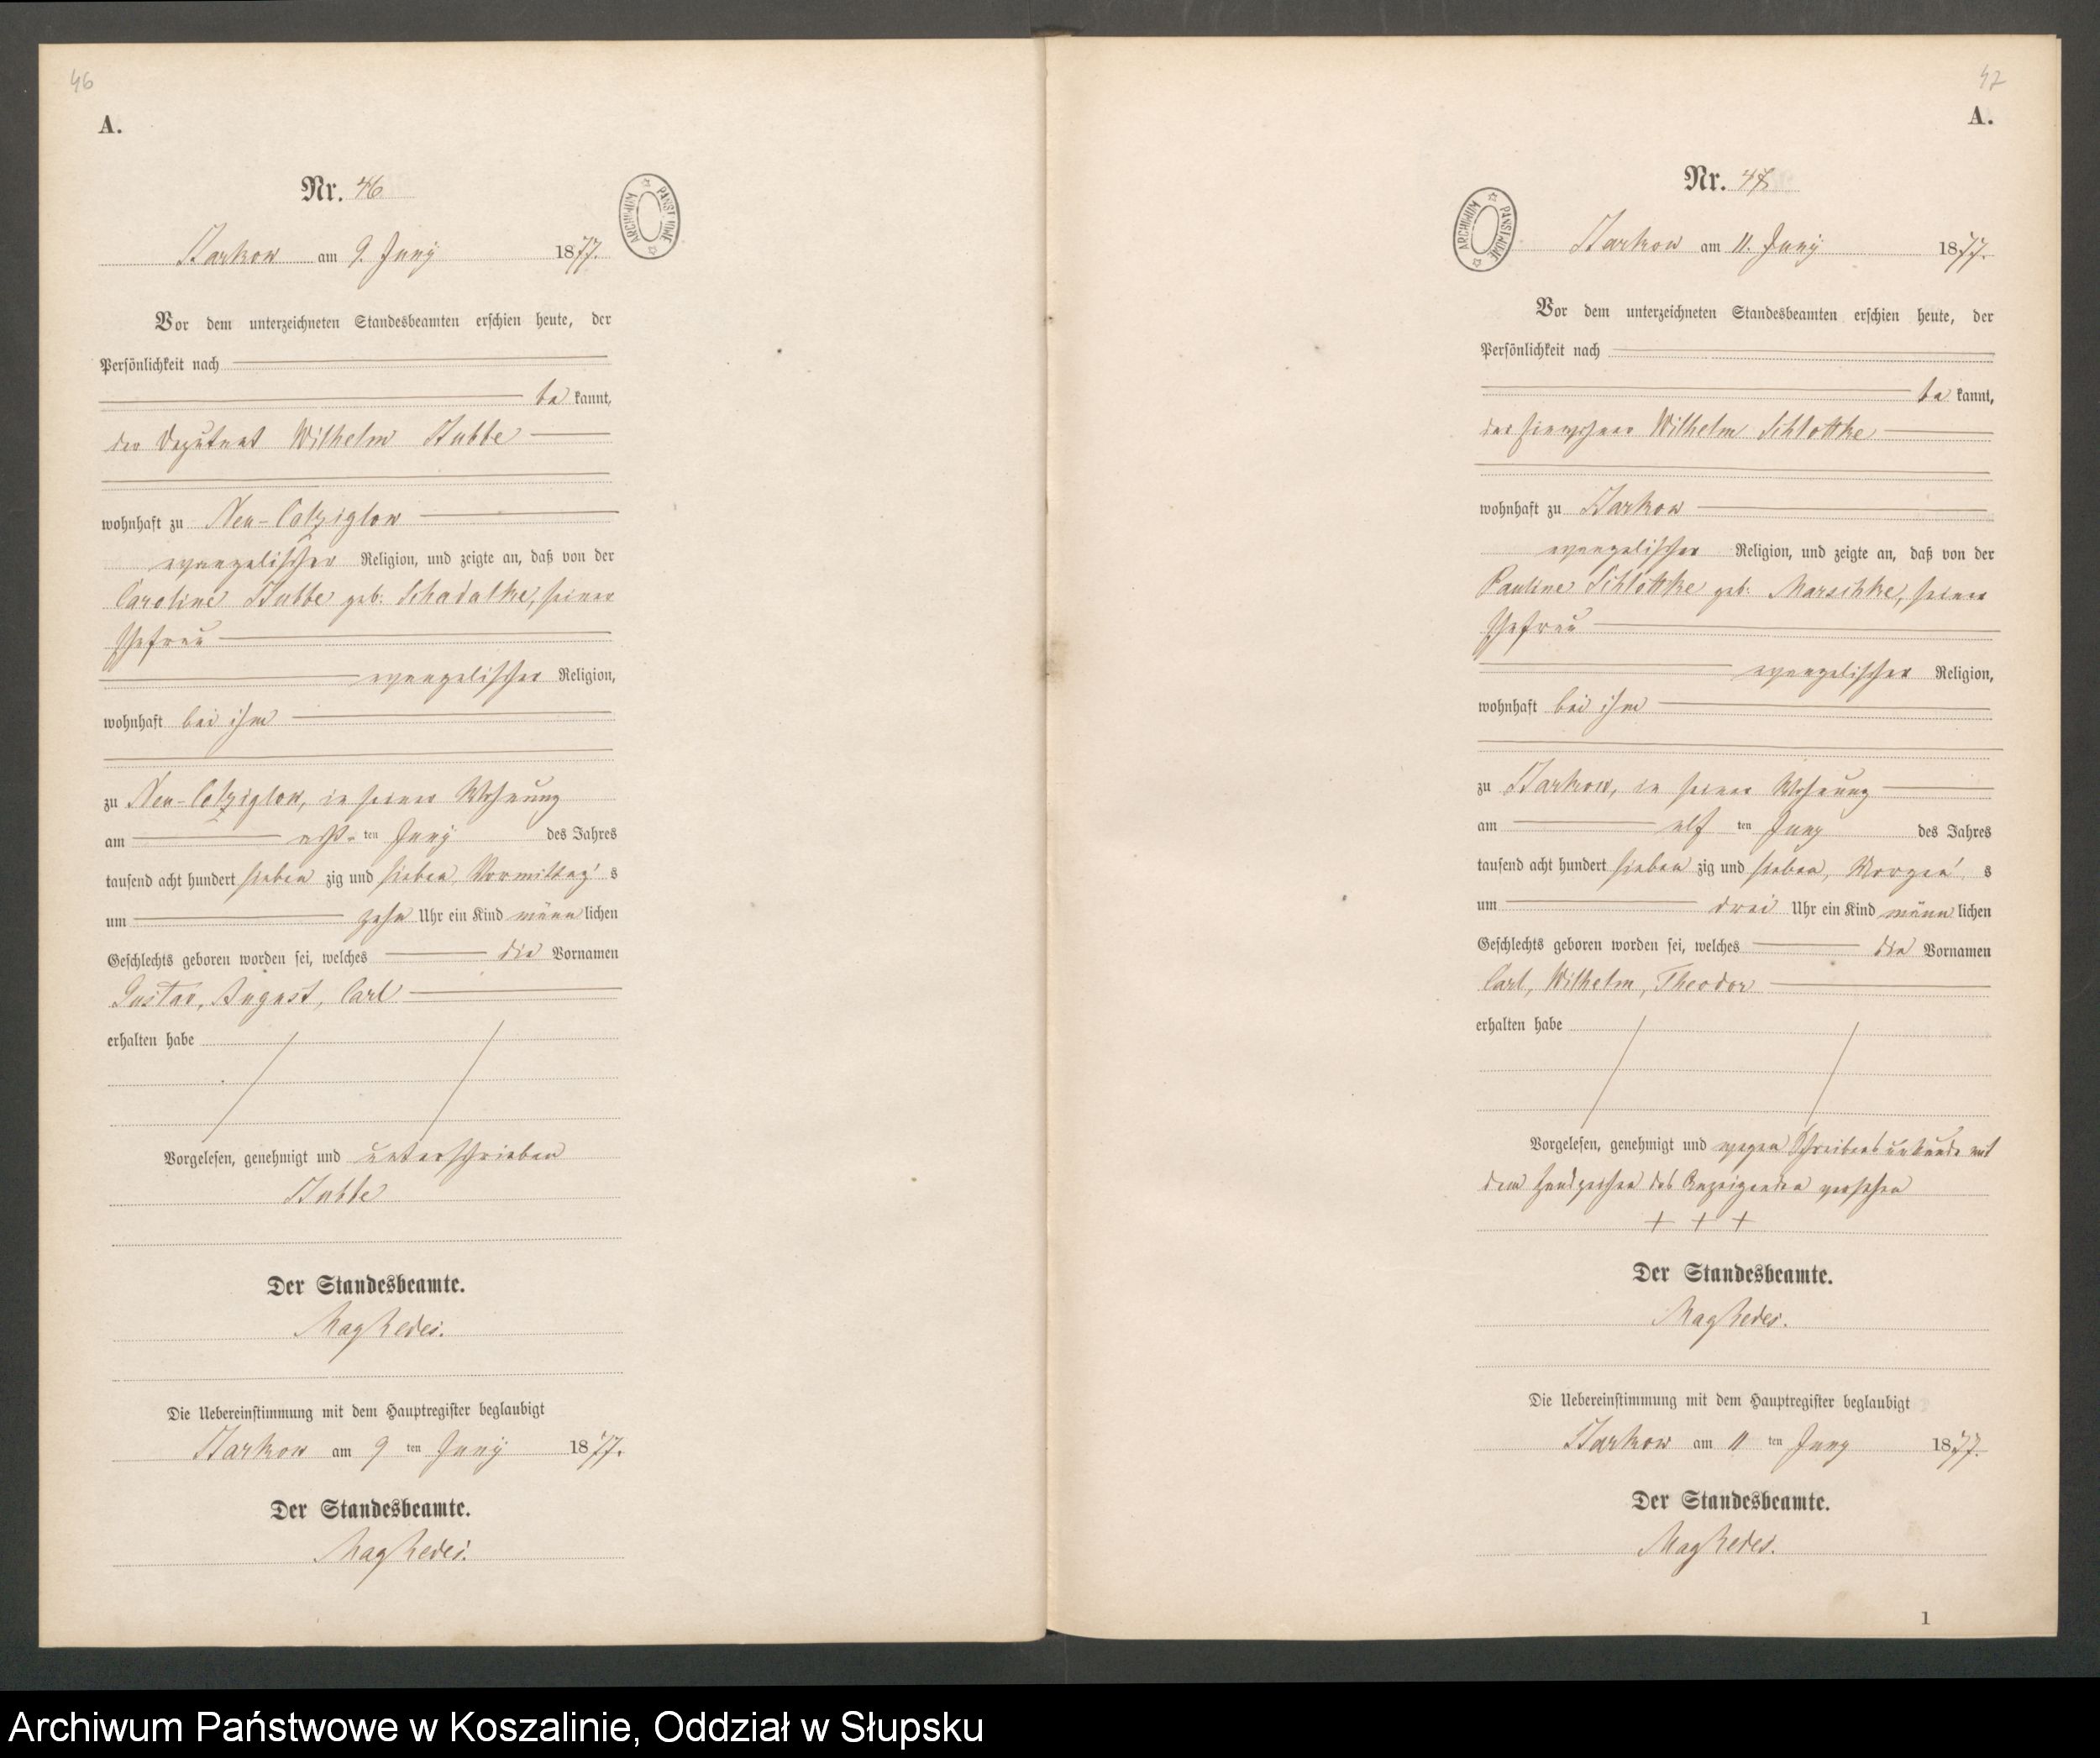 46
A.
Nr. 46
ARCHIWUM PAŃSTWOWE
Starkow am 9. Juny 1877.
Vor dem unterzeichneten Standesbeamten erschien heute, der
Persönlichkeit nach
be kannt,
der Deputant Wilhelm Stubbe
wohnhaft zu Neu-Cotziglow
evangelischer Religion, und zeigte an, daß von der
Caroline Stubbe geb: Schadalke, seiner
Ehefrau
evangelischer Religion,
wohnhaft bei ihm
zu Neu-Cotziglow, in seiner Wohnung
am acht ten Juny des Jahres
tausend acht hundert sieben zig und sieben, Vormittag's
um zehn Uhr ein Kind männ lichen
Geschlechts geboren worden sei, welches die Vornamen
Gustav, August, Carl
erhalten habe
Vorgelesen, genehmigt und unterschrieben
Stubbe
Der Standesbeamte.
Die Uebereinstimmung mit dem Hauptregister beglaubigt
Starkow am 9 ten Juny 1877.
Der Standesbeamte.
47
A.
Nr. 47
ARCHIWUM PAŃSTWOWE
Starkow am 11. Juny 1877.
Vor dem unterzeichneten Standesbeamten erschien heute, der
Persönlichkeit nach
be kannt,
der Einwohner Wilhelm Schlottke
wohnhaft zu Starkow
evangelischer Religion, und zeigte an, daß von der
Pauline Schlottke geb: Marschke, seiner
Ehefrau
evangelischer Religion,
wohnhaft bei ihm
zu Starkow, in seiner Wohnung
am elf ten Juny des Jahres
tausend acht hundert sieben zig und sieben, Morgen's
um drei Uhr ein Kind männ lichen
Geschlechts geboren worden sei, welches die Vornamen
Carl, Wilhelm, Theodor
erhalten habe
Vorgelesen, genehmigt und wegen Schreibensunkunde mit
dem Handzeichen des Anzeigenden versehen
+ + +
Der Standesbeamte.
Die Uebereinstimmung mit dem Hauptregister beglaubigt
Starkow am 11 ten Juny 1877.
Der Standesbeamte.
1
Archiwum Państwowe w Koszalinie, Oddział w Słupsku